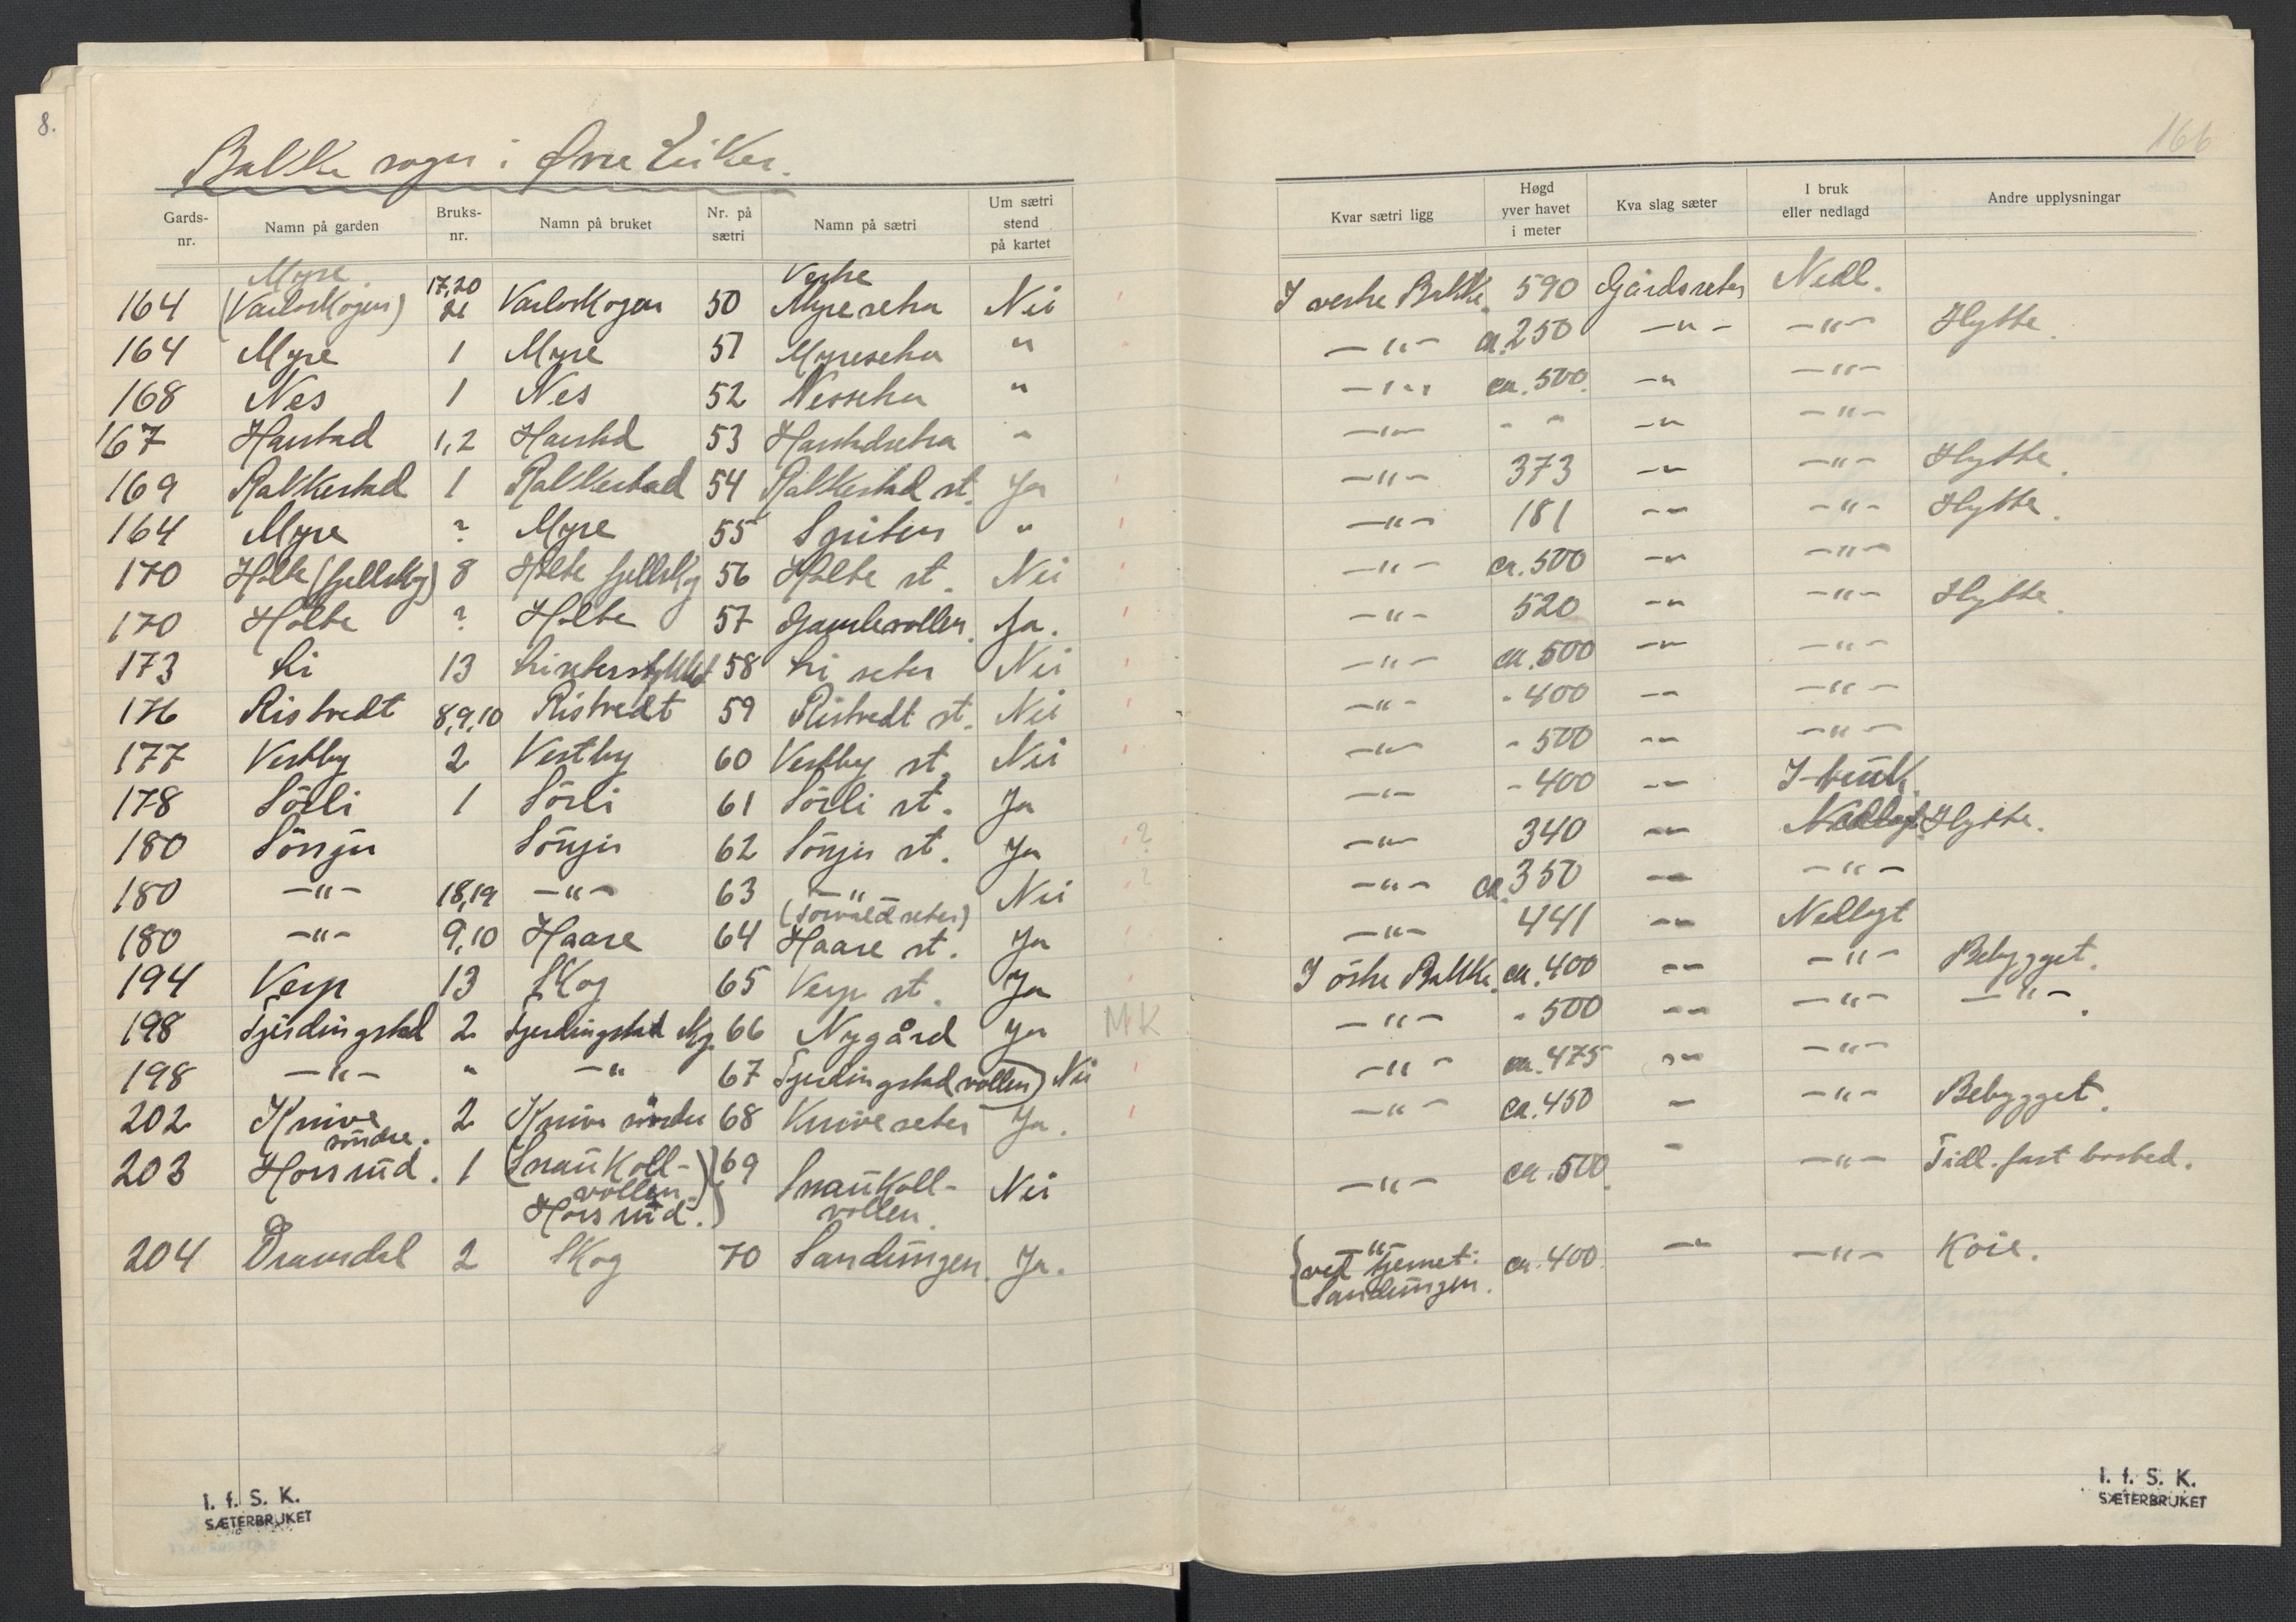 8.
166
Bakke sogn i Øvre Eiker.
Gards-nr. Namn på garden Bruks-nr. Namn på bruket Nr. på sætri Namn på sætri Um sætri stend på kartet Kvar sætri ligg Høgd yver havet i meter Kva slag sæter I bruk eller nedlagd Andre upplysningar
Myre 17,20 Vestre
164 (Varloskogen) 21 Varloskogen 50 Myresetra Nei I vestre Bakke. 590 Gårdsseter Nedl.
164 Myre 1 Myre 51 Myresetra " —"— ca. 250 —"— —"— Hytte.
168 Nes 1 Nes 52 Nessetra " —"— ca. 500. —" —"—
167 Harstad 1,2 Harstad 53 Harstadsetra " —"— - " —" —"—
169 Rakkestad 1 Rakkestad 54 Rakkestad st. Ja —"— 373 —" —"— Hytte.
164 Myre ? Myre 55 " —"— 181 —" —"— Hytte.
170 Holte (fjellskog) 8 Holte fjellskg 56 Holte st. Nei —"— ca. 500 —" —"—
170 Holte ? Holte 57 Gamlevollen. Ja. —"— 520 —" —"— Hytte.
173 Li 13 Liseterstykket 58 Li seter Nei —"— ca. 500 —" —"—
176 Ristvedt 8,9,10 Ristvedt 59 Ristvedt st. Nei —"— - 400 —" —"—
177 Vestby 2 Vestby 60 Vestby st. Nei —"— - 500 —" —"—
178 Sörli 1 Sörli 61 Sörli st. Ja —"— - 400 —" I bruk.
180 Sönju Sönju 62 Sönju st. Ja ? —"— 340 —" Nedlagt. Hytte.
180 —"— 18,19 —"— 63 —"— Nei ? —"— ca. 350 —" —"—
(Torvaldseter)
180 —"— 9,10 Haare 64 Haare st. Ja —"— 441 —" Nedlagt
194 Verp 13 Skog 65 Verp st. Ja I östre Bakke. ca. 400 —" —"— Bebygget.
198 Tjerdingstad 2 Tjerdingstad skg. 66 Nygård Ja MK —"— - 500 —" —"— —"—.
198 —"— " —" 67 Tjerdingstadvollen) Nei —"— ca. 475 —" —"—
202 Knive 2 Knive söndre 68 Kniveseter Ja. —"— ca. 450 — —"— Bebygget.
söndre.
203 Horsrud. 1 (Snaukoll- 69 Snaukoll- Nei —"— ca. 500. — —"— Tidl. fast bosted.
vollen.) vollen.
Horsrud.)
204 Dramdal 2 Skog 70 Sandungen. Ja. —"— ca. 400. —" —"— Koie.
(ved tjernet:
Sandungen.
I. f. S. K.
SÆTERBRUKET
I. f. S. K.
SÆTERBRUKET